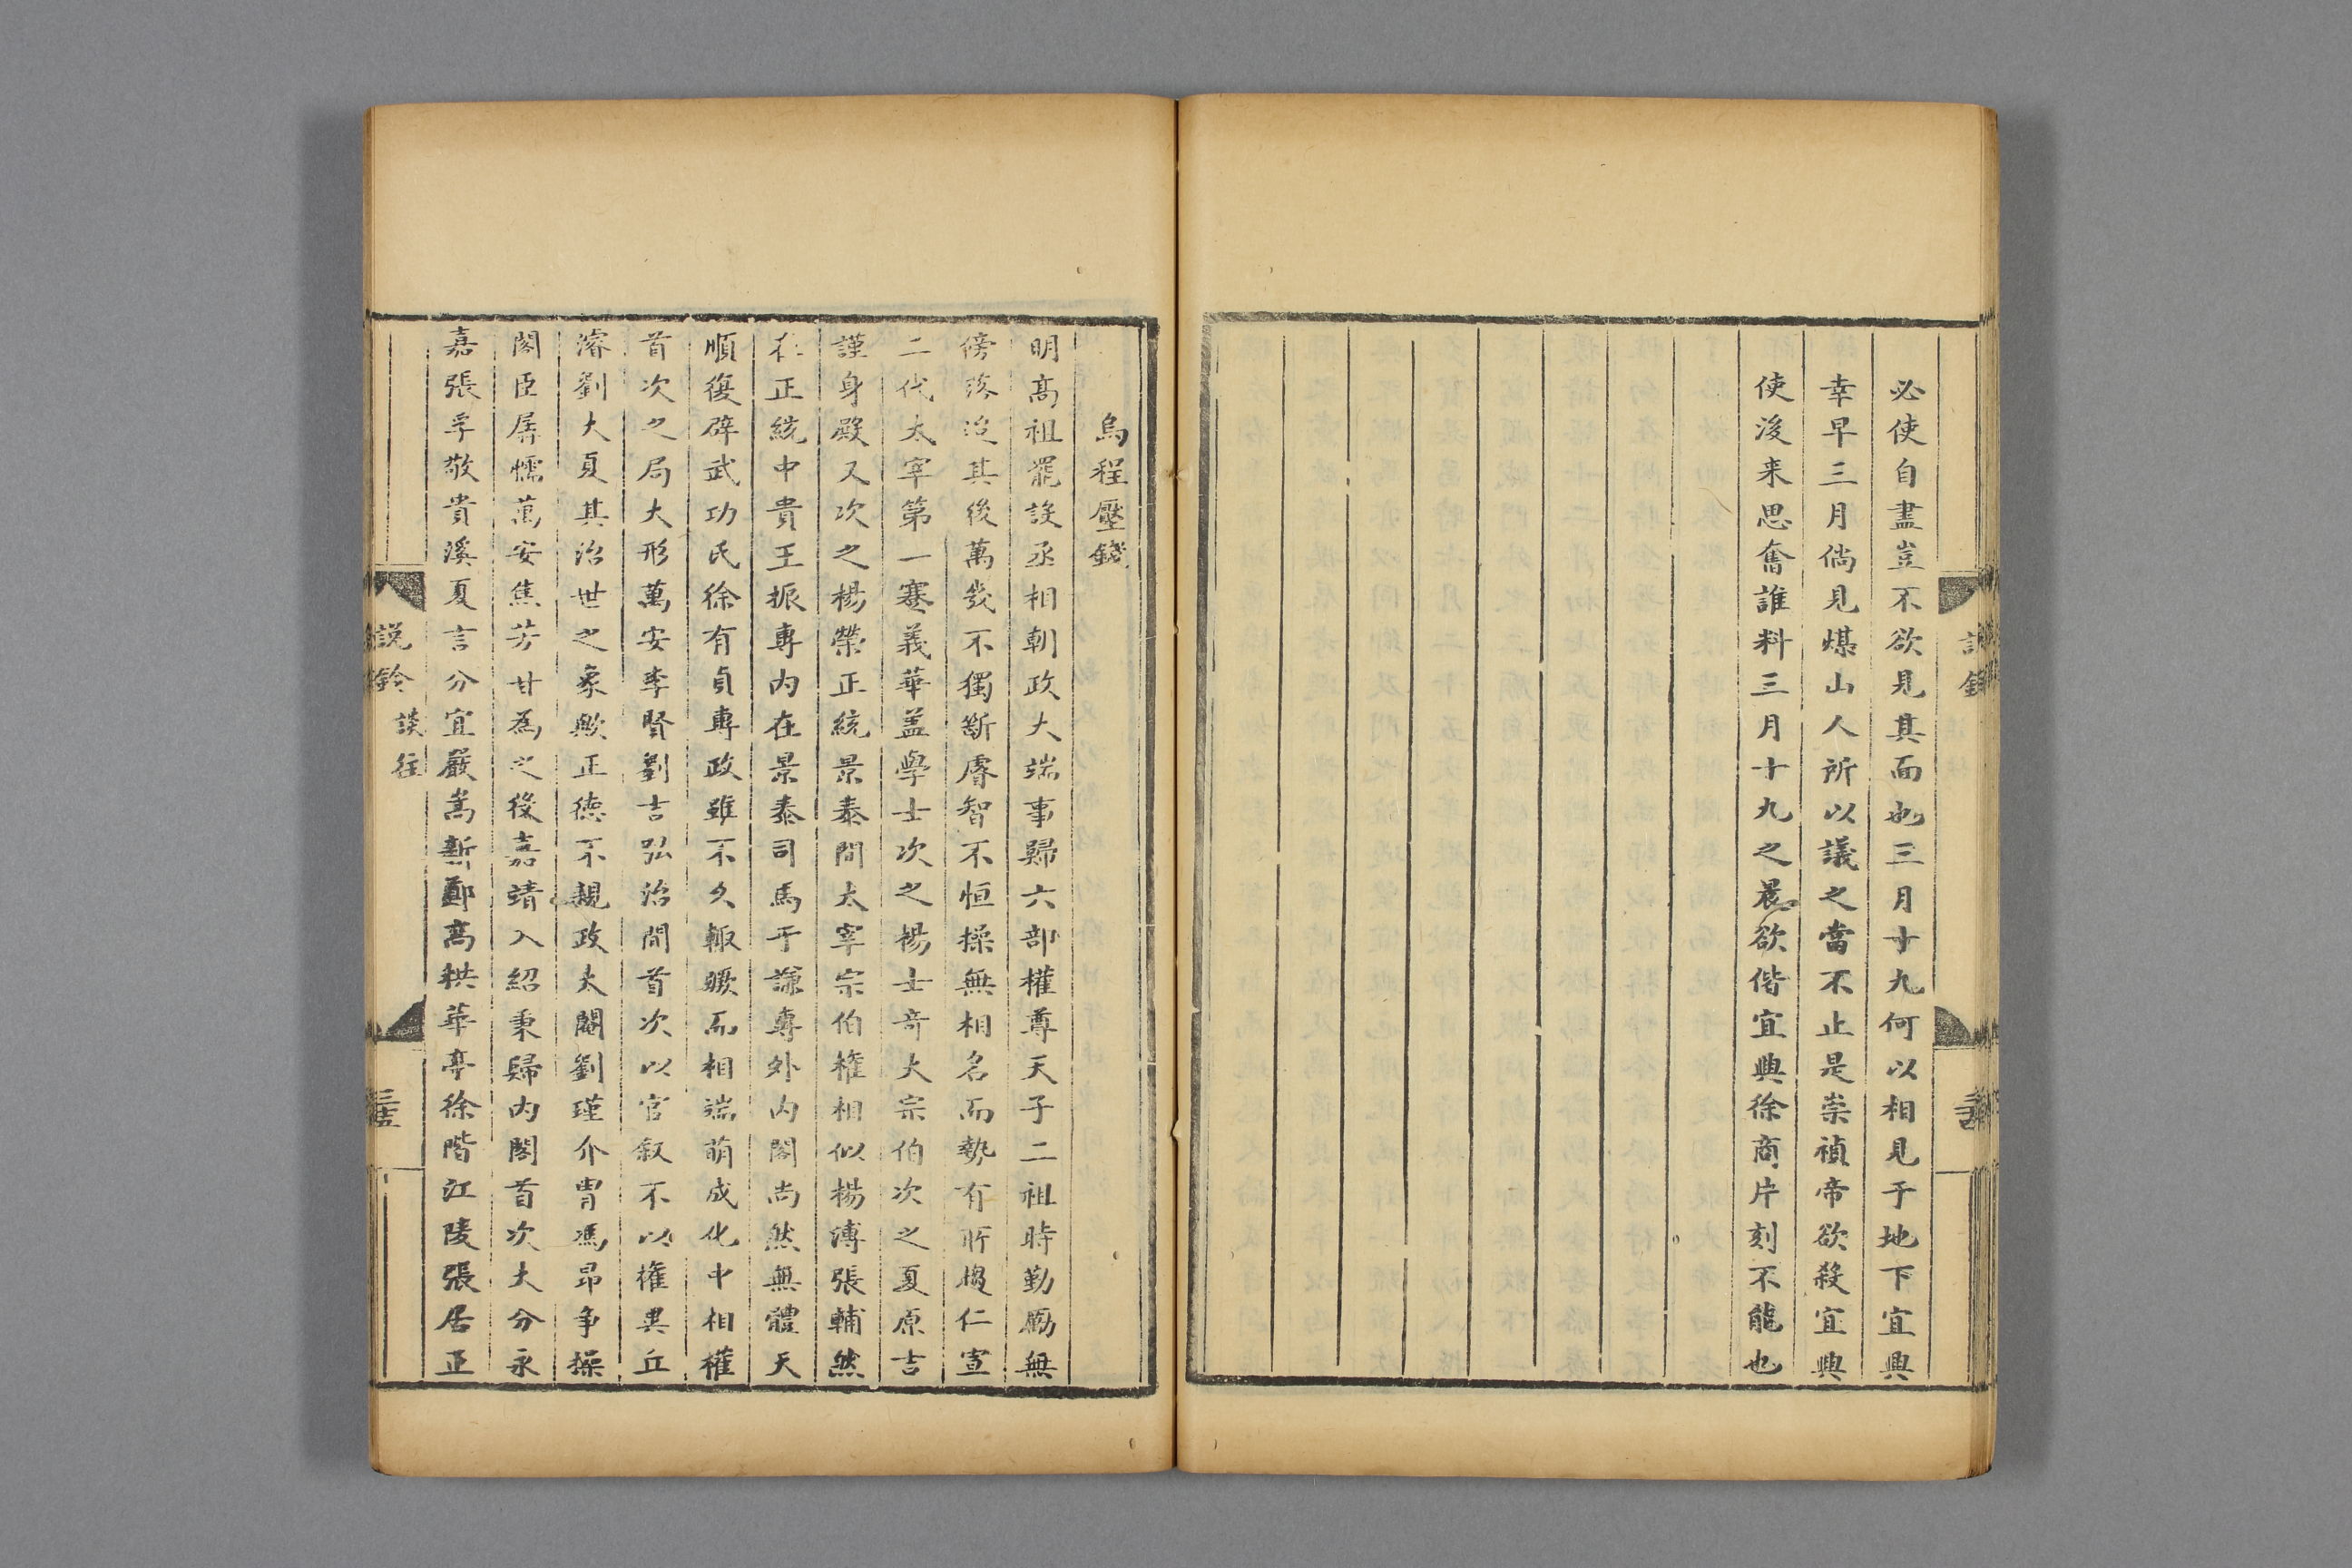 必使自盡豈不欲見其面也三月十九何以相見于地下宜興
幸早三月倘見煤山人所以議之當不止是崇禎帝欲殺宜興
使後来思奮誰料三月十九之晨欲偕宜興徐商片刻不能也
烏程壓錢
明高祖罷設丞相朝政大端事歸六部權尊天子二祖時勤勵無
傍落迨其後萬幾不獨斷睿智不恒操無相名而勢有所趨仁宣
二代太宰第一蹇義華盖學士次之楊士奇大宗伯次之夏原吉
謹身殿又次之楊榮正統景泰間太宰宗伯權相似楊溥張輔然
在正統中貴王振專内在景泰司馬于謙專外内閣尚然無體天
順復辟武功氏徐有貞專政雖不久輒蹶而相端萌成化中相權
首次之局大形萬安李賢劉吉弘治間首次以官叙不以權異丘
濬劉大夏其治世之象歟正德不親政太閹劉瑾介胄馮昂争操
閣臣孱懦萬安焦芳甘為之後嘉靖入紹秉歸内閣首次大分永
嘉張孚敬貴溪夏言分宜嚴嵩新鄭高拱華亭徐階江陵張居正
説鈴
談往
三十五